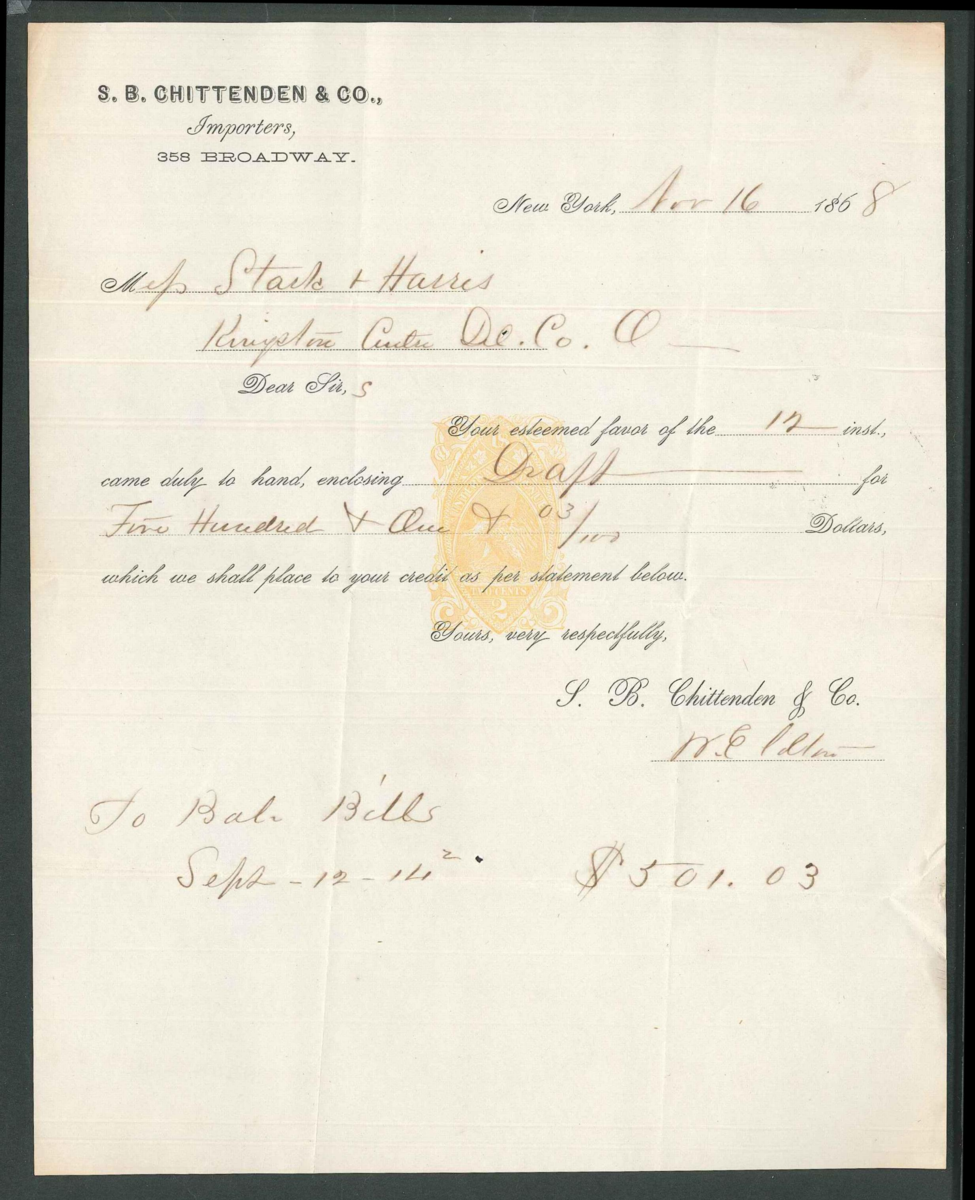 S. B. CHITTENDEN & CO.,
Importers,
358 BROADWAY.
New York, Nov 16 1868
Mess Stark & Harris
Kingston Center Del. Co. O
Dear Sir,s
Your esteemed favor of the 12 inst.,
came duly to hand, enclosing Draft for
Five Hundred & One & 03/100 Dollars,
which we shall place to your credit as per statement below.
CENTS
2
Yours, very respectfully,
S. B. Chittenden & Co.
W. E
To Bals Bills
Sept - 12 - 14 2 $501.03